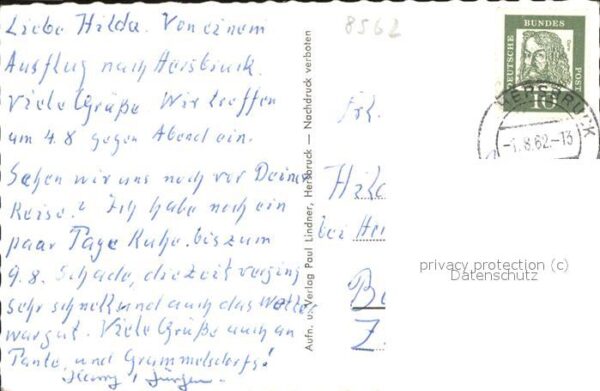 Liebe Hilda. Von einem
Ausflug nach Hersbruck.
Viele Grüße. Wir treffen
am 4.8 gegen Abend ein.
Sehen wir uns noch vor Deiner
Reise? Ich habe noch ein
paar Tage Ruhe. bis zum
9.8. Schade, die Zeit verging
sehr schnell und auch das Wetter
war gut. Viele Grüße auch an
Tante, und Grammelsdorfs!
Jürgen
8562
Aufn. u. Verlag Paul Lindner, Hersbruck — Nachdruck verboten
DEUTSCHE BUNDESPOST
10
HERSBRUCK
-1.8.62.-13
Frl.
Hild
bei Her
Be
Z.
privacy protection (c)
Datenschutz